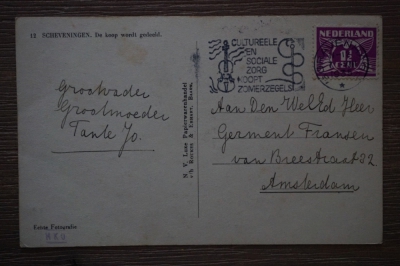 13 SCHEVENINGEN. De koop wordt gedeeld.
Grootvader
Grootmoeder
Tante Jo.
Extra Fotografie
N. V. Luxe Papierwarenhandel
v/h Roukes & Erhart, Baarn.
CULTUREELE
EN
SOCIALE
ZORG
KOOPT
ZOMERZEGELS
NEDERLAND
CENT
Aan Den WelEd Heer
Germent Fransen
van Breestraat 32
Amsterdam